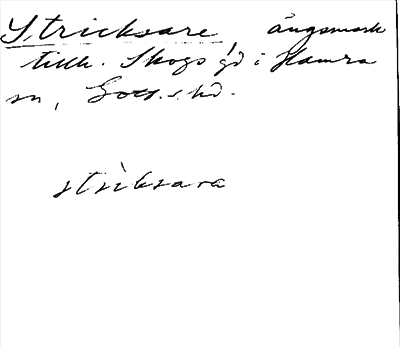 Stricksare, ängsmark
tillh. Skogs gd i Hamra
sn, Gotl. s. hd.
stricksara